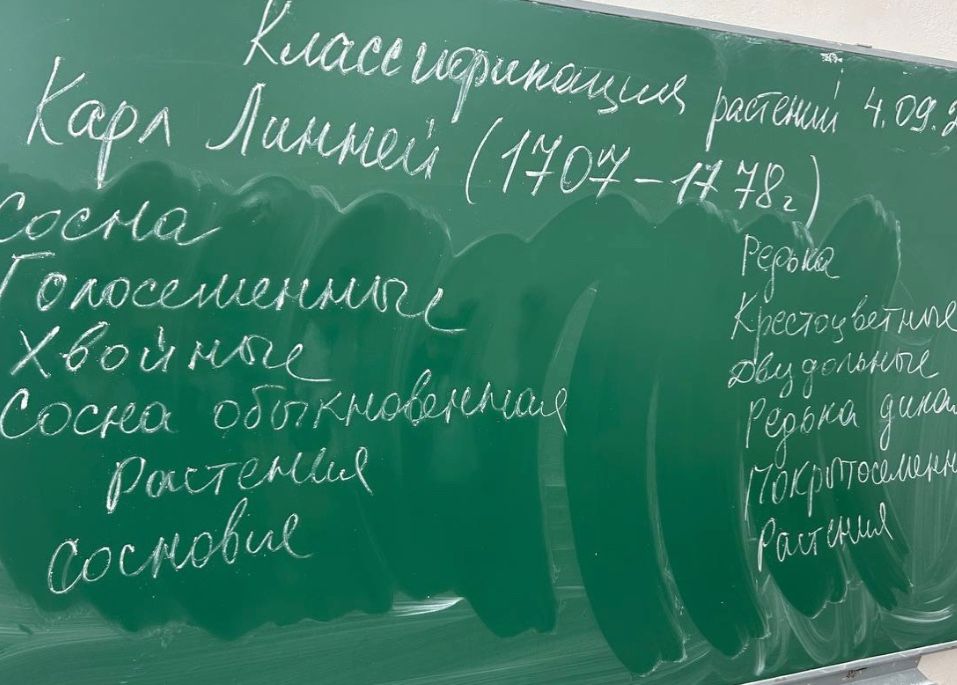 Классификация растений 4.09.2
Карл Линней (1707-1778г)
Сосна
Голосеменные
Хвойные
Сосна обыкновенная
Растения
Сосновые
Редька
Крестоцветные
Двудольные
Редька дикая
Покрытосеменн
Растения